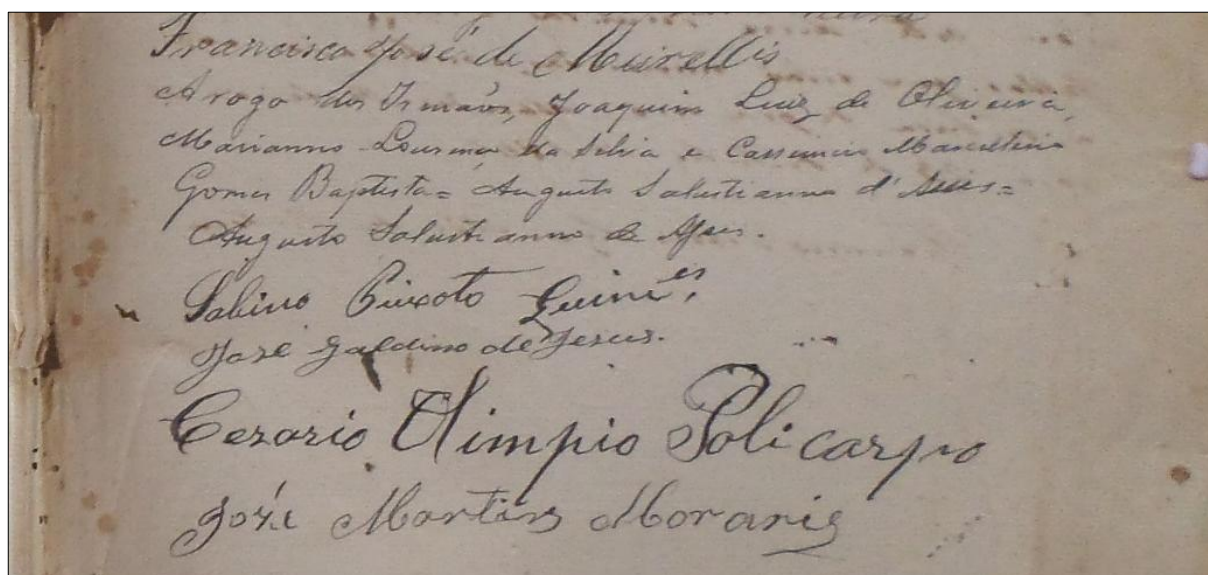 Francisco José de Meirellis
Arogo dos Irmãos, Joaquim Luiz de Oliveira,
Marianno Lourenço da Silva e Marcellino
Gomes Baptista= Augusto Salustianno d'Assis=
Augusto Salustianno de Assis.
Sabino Peixoto
José Galdino de Jesus.
Cezario Olimpio Policarpo
José Martins Moraris